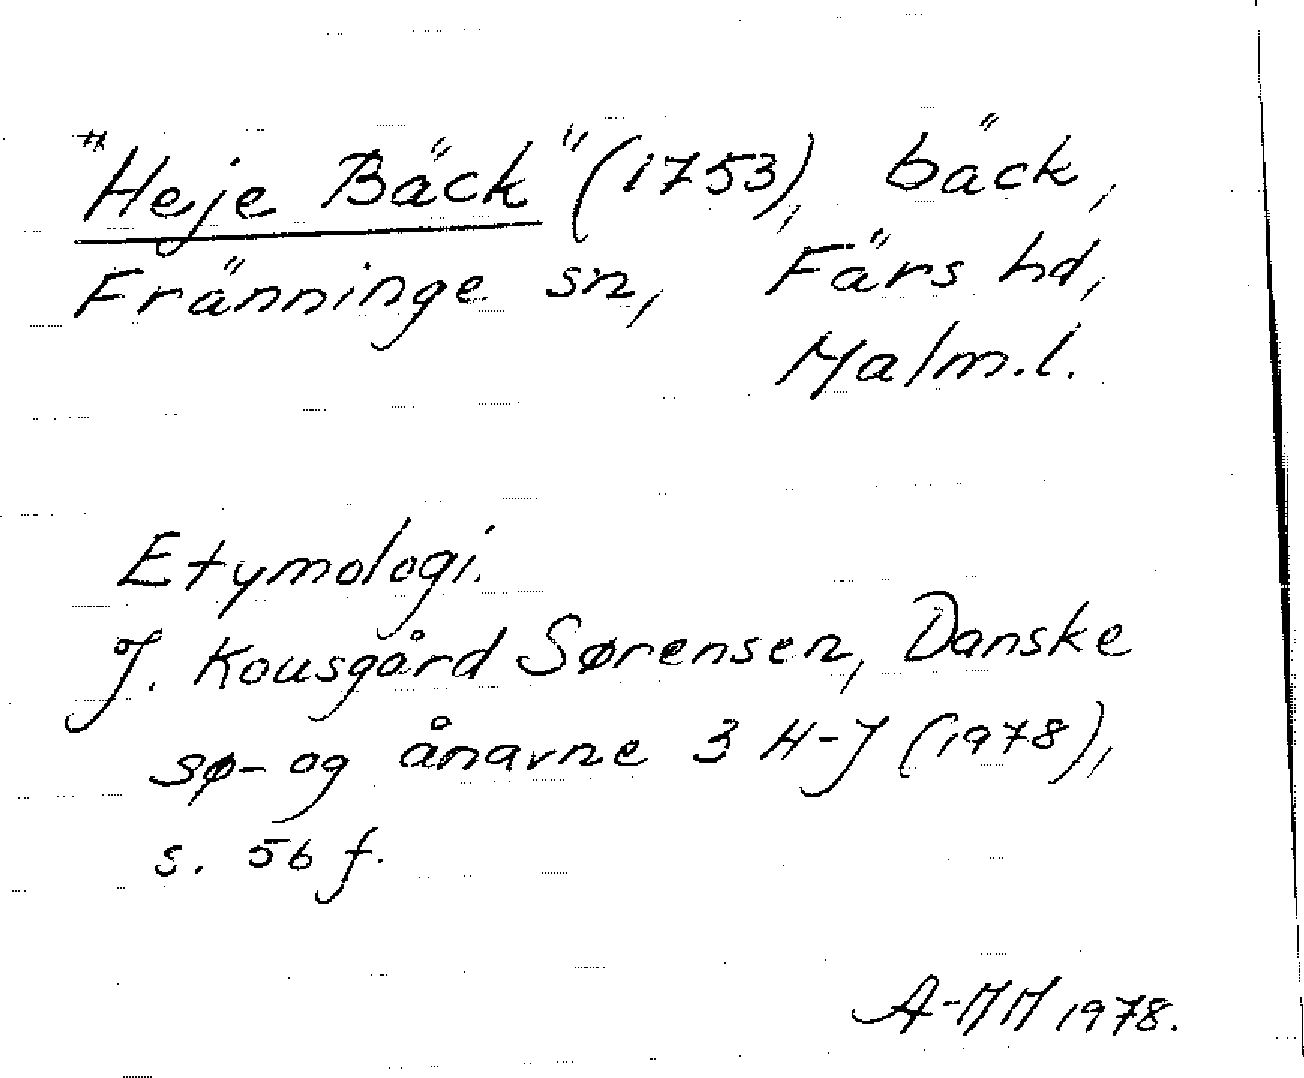 "Heje Bäck" (1753), bäck,
Fränninge sn, Färs hd,
Malm.l.
Etymologi.
J. Kousgård Sørensen, Danske
sø- og ånavne 3 H-J (1978),
s. 56 f.
A-MM 1978.